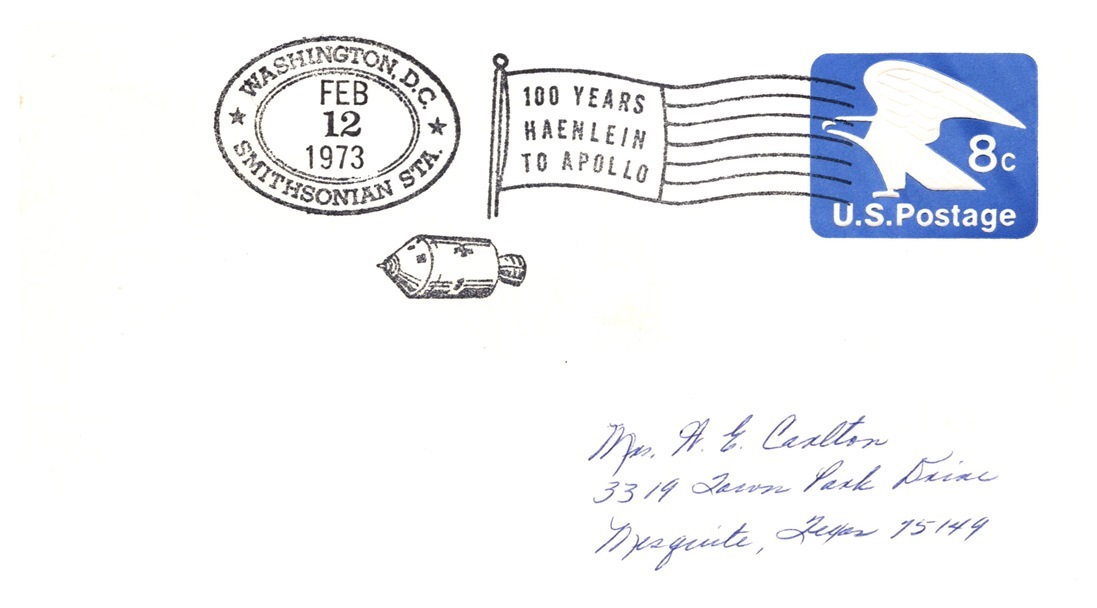 WASHINGTON, D.C.
FEB
12
1973
SMITHSONIAN STA.
100 YEARS
HAENLEIN
TO APOLLO
8c
U.S. Postage
Mrs. H. E. Carlton
3319 Town Park Drive
Mesquite, Texas 75149